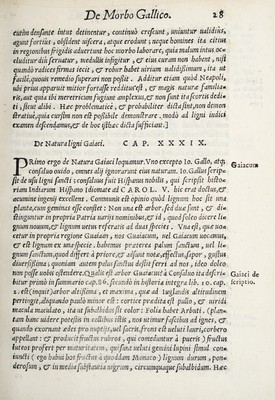 De Morbo Gallico. 28
eutim densante intus detinentur, continuò crescunt, uniuntur ualidiùs,
agunt fortiùs, obsident uiscera, atque erodunt; neque homines ita citius
in regionibus frigidis aduertunt hoc morbo laborare, quia malum intus oc-
cluditur diù seruatur, medullis infigitur, & eius curam non habent, nisi
quando radices firmas iecit, & robur habet uirium ualidissimum, ita ut
facilè, quouis remedio superari non possit. Additur etiam quòd Neapoli,
ubi prius apparuit mitior fortasse redditus est, & magis naturæ familia-
ris, aut quia ibi meretricum fugiunt amplexus, & non sunt ita scortis dedi-
ti, sicut alibi. Hæc problematicè, & probabiliter dicta sint, non demon
stratiuè, quia cursim non est possibile demonstrare. modò ad ligni indici
examen descendamus, & de hoc hactenus dicta sufficiant.
De Natura ligni Gaiaci. CAP. XXXIX.
PRimo ergo de Natura Gaiaci loquamur. Vno excepto Io. Gallo, atque
consiluo ouido, omnes alij ignorarunt eius naturam. Io. Gallus scrips-
sit de usu ligni sancti: consiluus fuit Hispanus nobilis, qui scripsit histo-
riam Indiarum Hispano idiomate ad CAROL. V. hic erat doctus, &
acumine ingenij excellens. Communis est opinio quòd lignum hoc sit una
planta, cuius geminæ esse constet: Non una est arbor, sed duæ sunt, & di-
stinguntur in propria Patria uarijs nominibus, & id, quod solco dicere li-
gnum nouum, & lignum uetus referatis ad duas species. Vna est, quæ uo-
catur in propria regione Guaiam, nos Guaiacum, uel Gaiacum uocamus,
& est lignum ex una specie. habemus præterea palum sanctum, uel li-
gnum sanctum, quod differt à priore, & assunt notæ, effectus, sapor, gustus
diuersissimi; quoniam autem palus sanctus desijt ferri ad nos, ideo doleo
non posse uobis ostendere. Qualis est arbor Guaiacum à Consiluo ita descri-
bitur primò in summario cap. 86. secundò in historia integra lib. 10. cap.
2. est (inquit) arbor altissima, et maxima, quæ ad iuglandis altitudinem
pertingit, aliquando paulò minor est: cortice prædita est pullo, & uiridi
macula maculato, ita ut subalbidus sit color: Folia habet Arbuti. (plan-
tam hanc uidere potestis in collibus istis, nos uitimur fascibus ad ignes, &
quando exornant ædes pro nuptijs, uel sacris, front est uelut lauri, corbero
appellant: & producit fructus rubros, qui comeduntur à pueris) fructus
luteos profert per maturitatem, quasi uelut gemini lupini simul con-
iuncti (ego habui hos fructus à quoddam Monaco) lignum durum, pon-
derosum, & in medio substantia nigrum, circumquaque subalbidum. Hæc
Gaiacum
Gaiaci de
scriptio.